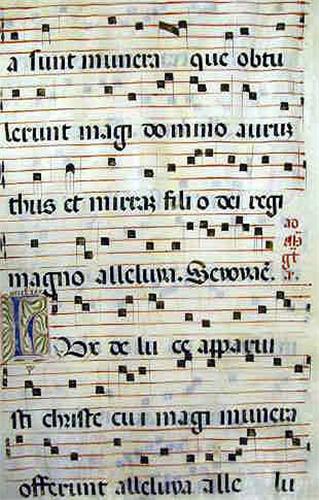 a sunt munera que obtu
lerunt magi do mino auruʒ
thus et mirraʒ fili o dei regi
magno alleluya. Seuouae.
Lux de lu ce apparui
sti christe cu i magi munera
offerunt alleluya alle lu